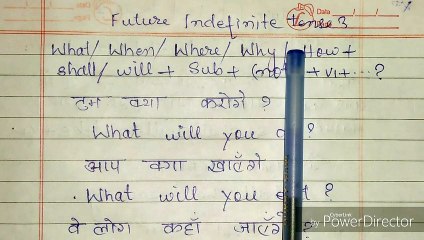 Future Indefinite tense 3
What/ When/ Where/ Why/ How +
shall/ will + Sub + (not) + V1 + ...?
तुम क्या करोगे ?
What will you ?
आप क्या खाएँगे
. What will you ?
वे लोग कहाँ जाएँगे
by PowerDirector